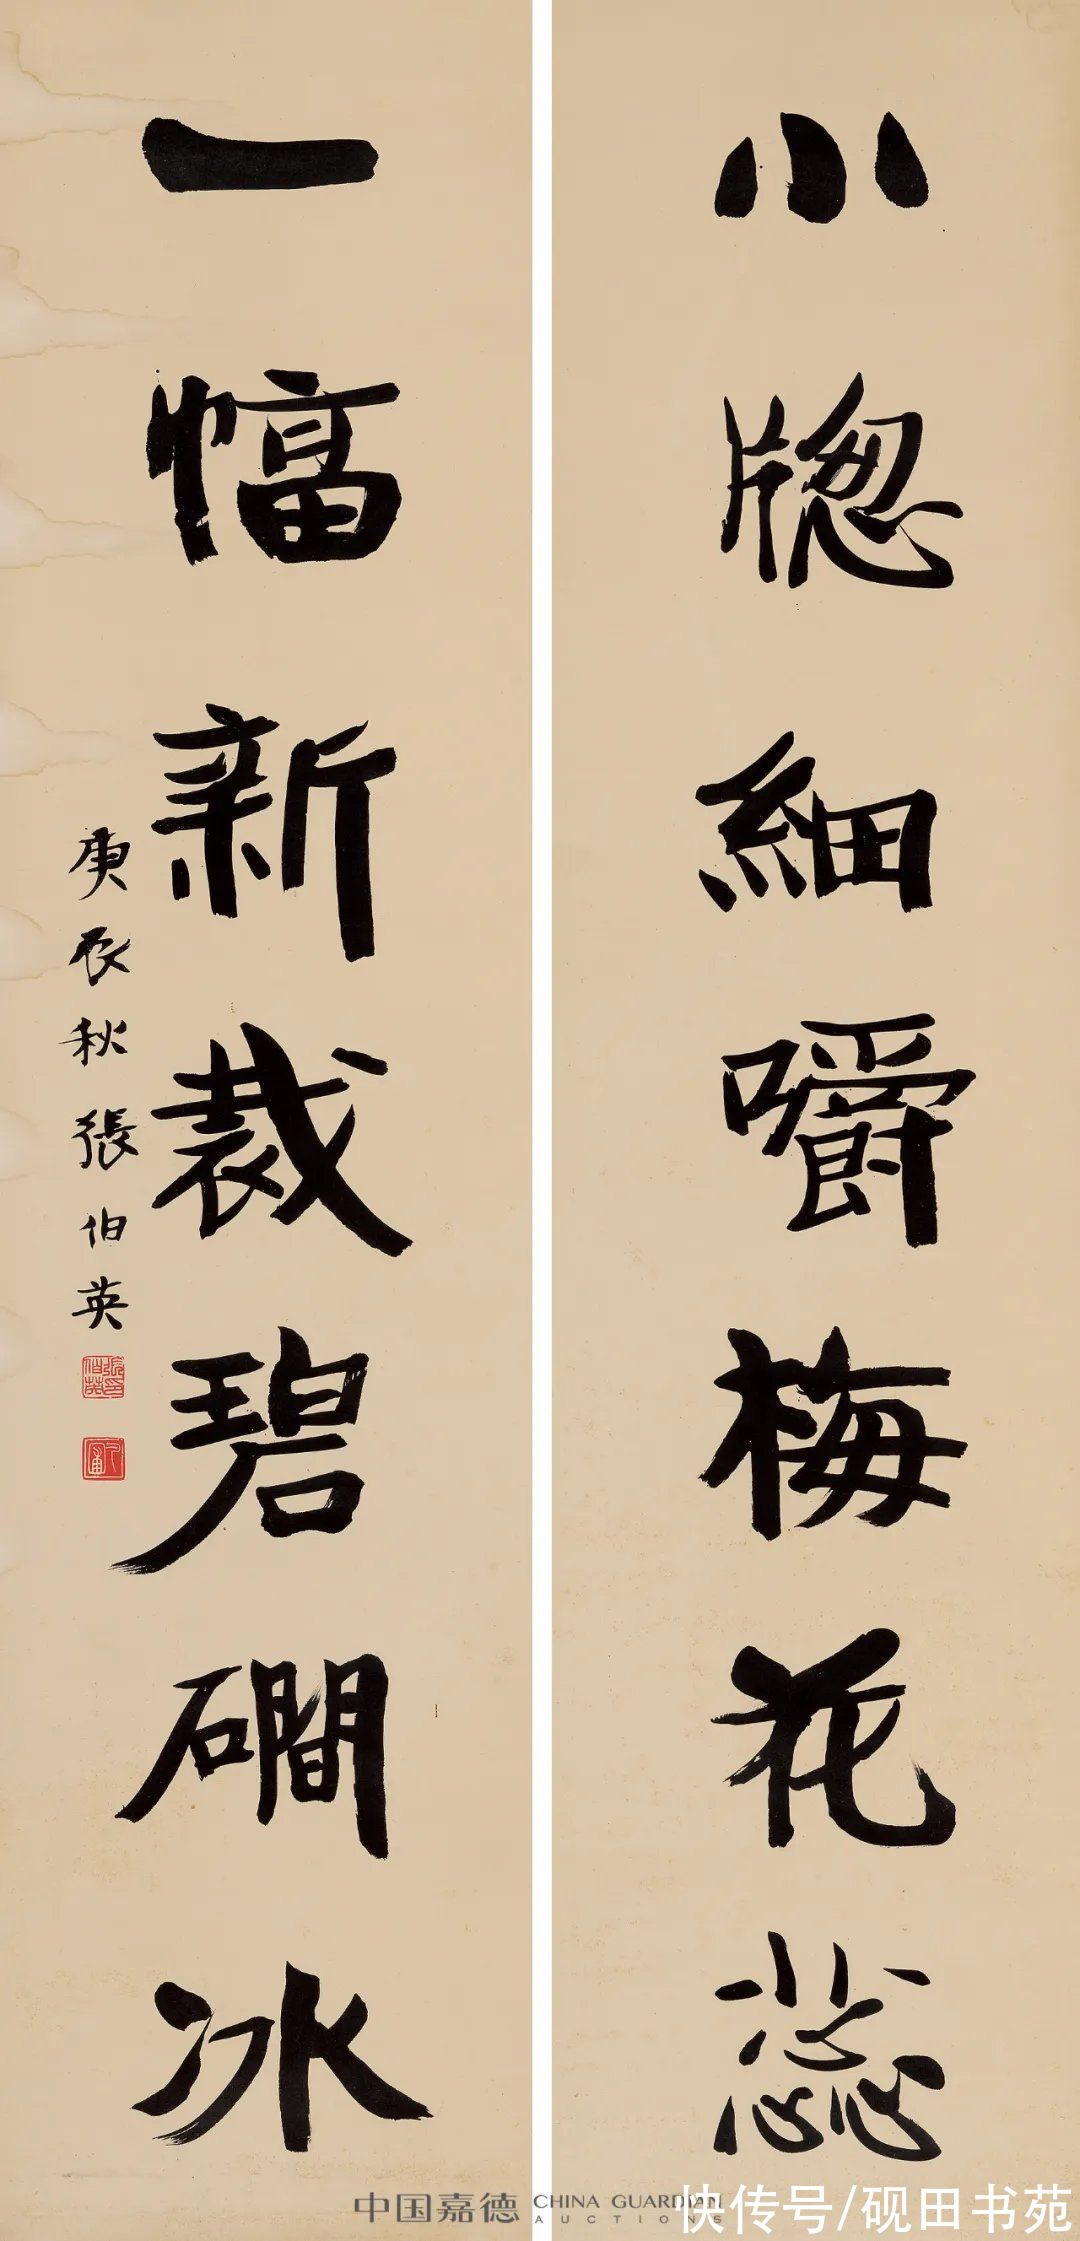 小牎細嚼梅花蕊
一幅新裁碧磵冰
庚辰秋張伯英
張伯英印
中国嘉德 CHINA GUARDIAN AUCTIONS
快传号/砚田书苑